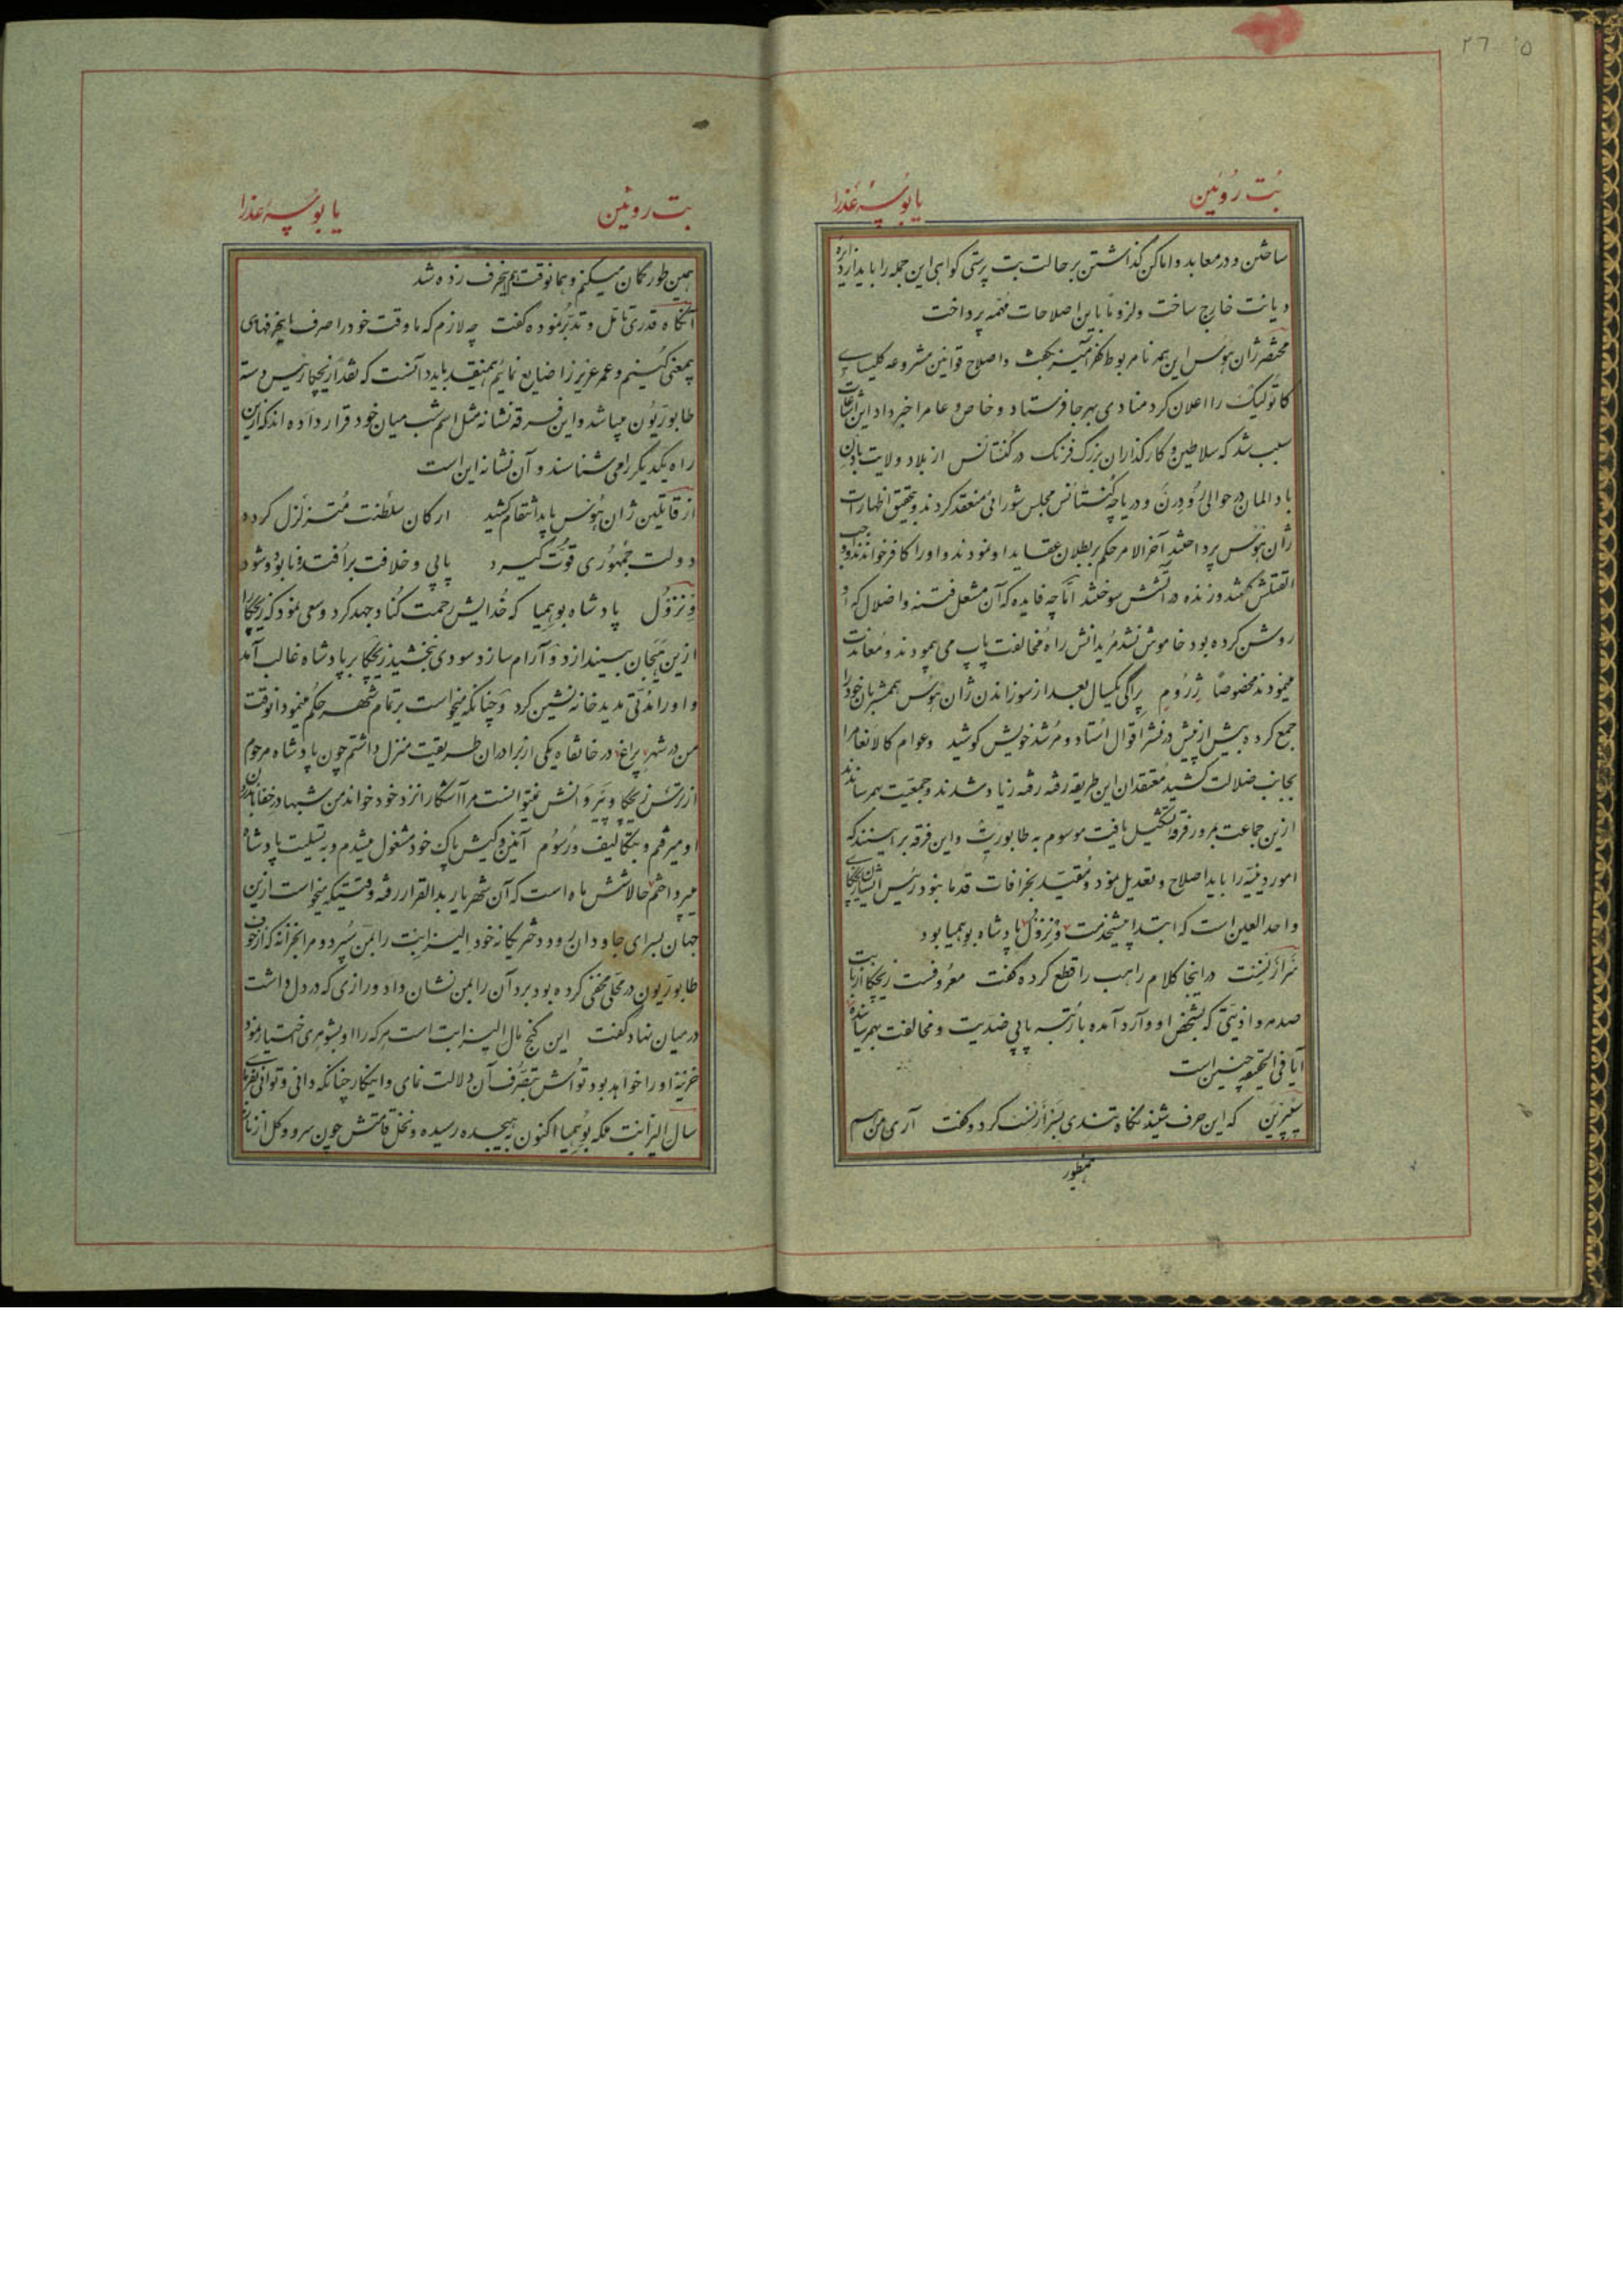 ۲۶
بُت رُوئین
یا بُوسهٔ عَذرا
ساختن و در معابد و اماکن گذاشتن بر حالت بت پرستی گواهی این جمله را باید از دایرهٔ
دیانت خارج ساخت و لزوماً باین اصلاحات مهمّه پرداخت
مختصر ژان هوس این همه نامربوط کفر آمیز بگفت و اصلاح قوانین مشروعه کلیسای
کاتولیک را اعلان کرد منادی بهر جا فرستاد و خاص و عام را خبر داد این اشاعات
سبب شد که سلاطین و کارگذاران بزرگ فرنک در کُنستانس از بلاد ولایت بادن
باد المان در حوالی رُود رن و دریاچه کُنستانس مجلس شورائی منعقد کردند و بتحقیق اظهارات
ژان هوس پرداختند آخر الامر حکم بر بطلان عقاید او نمودند و او را کافر خواندند و واجب
القتلش گفتند و زنده در آتشش سوختند امّا چه فایده که آن مشعل فتنه و اضلال که او
روشن کرده بود خاموش نشد مُریدانش راه مخالفت پاپ می پیمودند و مُعاندت
مینمودند مخصوصاً ژِرُومِ پراگی یکسال بعد از سوزاندن ژان هوس همشربان خود را
جمع کرده بیش از پیش در نشر اقوال اُستاد و مُرشد خویش کوشید و عوام کالانعام را
بجانب ضلالت کشید مُعتقدان این طریقه رفته رفته زیاد شدند و جمعیت بهم رساندند
ازین جماعت بمرور فرقهٔ تشکیل یافت موسوم به طابوریت و این فرقه بر اینند که
امور دینیّه را باید اصلاح و تعدیل نمود و مُقیّد بخرافات قدما نبود رئیس ایشان ژان زیچکای
واحد العین است که ابتدا پیشخدمت وِنزِزول پادشاه بوهیمیا بود
نَرازَنست در اینجا کلام راهب را قطع کرده گفت معروفست زیچکا از بابت
صدمه و اذیتی که بشخص او وارد آمده با رُتبه پاپی ضدیت و مخالفت بهم رسانده
آیا فی الحقیقه چنین است
سیپرین که این حرف شنید نگاه تندی بنرازنست کرد و گفت آری من هم
همینطور
بت روئین
یا بوسهٔ عذرا
همین طور گمان میکنم و همانوقت هم این حرف زده شد
آنگاه قدری تأمّل و تدبّر نموده گفت چه لازم که ما وقت خود را صرف این حرفهای
بیمعنی کنیم و عمر عزیز را ضایع نمائیم همینقدر باید دانست که نقداً زیچکا رئیس دسته
طابوریون میباشد و این فرقه نشانه مثل اسم شب میان خود قرار داده اند که از این
راه یکدیگر را می شناسند و آن نشانه این است
از قاتلین ژان هُوس باید انتقام کشید ارکان سلطنت مُتزلزل کرده
دولت جمهوری قوّت گیرد پاپی و خلافت بر اُفتد و نابود شود
وِنزِزول پادشاه بوهیمیا که خُدایش رحمت کناد جهد کرد و سعی نمود که زیچکا را
ازین هَیَجان بیندازد و آرام سازد سودی نبخشید زیچکا بر پادشاه غالب آمد
و او را مُدّتی مدید خانه نشین کرد و چنانکه میخواست بر تمام شهر حکم مینمود انوقت
من در شهر پراغ در خانقاه یکی از برادران طریقت منزل داشتم چون پادشاه مرحوم
از ترس زیچکا و پَیروانش نمیتوانست مرا آشکارا نزد خود خواند من شبها در خفا بنزد
او میرفتم و بتکالیف و رُسُوم آئین و کیش پاک خود مشغول میشدم و به تسلیت پادشاه
میپرداختم حالا شش ماه است که آن شهریار بدار القرار رفته وقتیکه میخواست ازین
جهان بسرای جاودان رود دختر یگانه خود اِلیزابِت را بمن سپُرد و مرا بخزانه که از خوف
طابوریون در محلّی مخفی کرده بود برد آن را بمن نشان داد و رازی که در دل داشت
در میان نهاد گفت این گنج مال الیزابت است هر که را او بشوهری اختیار نمود
خزینه او را خواهد بود تواش بتصرّف آن دلالت نمای و اینکار چنانکه دانی و توانی بفرمای
سال الیزابت ملکه بوهیمیا اکنون به هیجده رسیده و نخل قامتش چون سرو و گل از